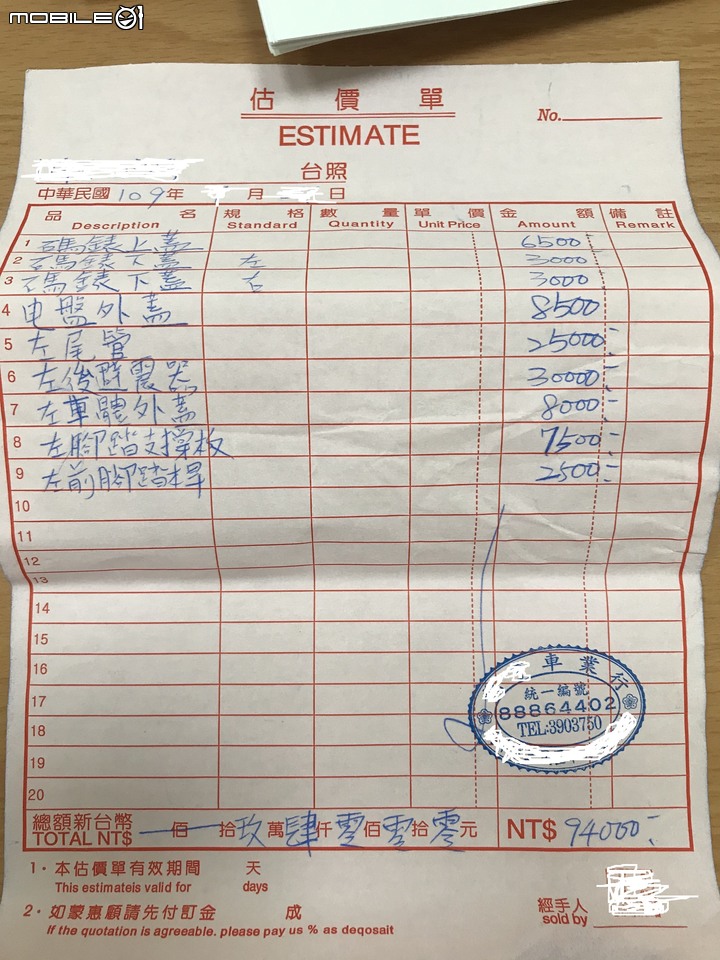 mobile01
估價單
ESTIMATE
No.
台照
中華民國109年 月 日
品名 規格 數量 單價 金額 備註
Description Standard Quantity Unit Price Amount Remark
1 碼錶上蓋 6500
2 碼錶下蓋 左 3000
3 碼錶下蓋 右 3000
4 电盤外蓋 8500
5 左尾管 25000
6 左後避震器 30000
7 左車體外蓋 8000
8 左腳踏支撐板 7500
9 左前腳踏桿 2500
10
11
12
13
14
15
16
17
18
19
20
車業行
統一編號
88864402
TEL:3903750
總額新台幣 佰 拾玖萬肆仟零佰零拾零元
TOTAL NT$ NT$ 94000
1・本估價單有效期間 天
This estimateis valid for days
2・如蒙惠顧請先付訂金 成
If the quotation is agreeable. please pay us % as deqosait
經手人
sold by